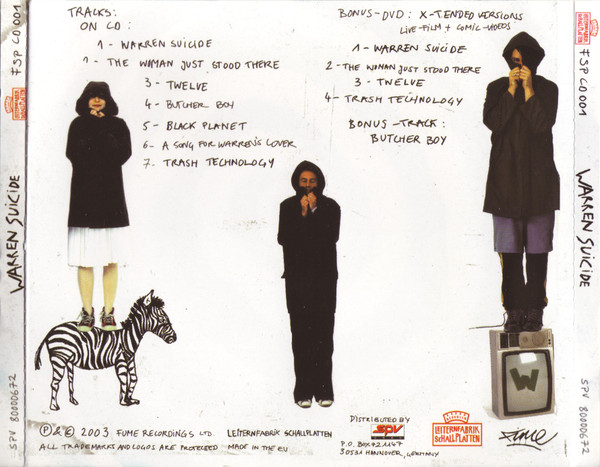 FSP CD 001
LEITERNFABRIK
SCHALLPLATTEN
WARREN SUICIDE
SPV 80000672
TRACKS:
ON CD:
1 - WARREN SUICIDE
2 - THE WOMAN JUST STOOD THERE
3 - TWELVE
4 - BUTCHER BOY
5 - BLACK PLANET
6 - A SONG FOR WARREN'S LOVER
7 - TRASH TECHNOLOGY
BONUS-DVD: X-TENDED VERSIONS
LIVE-FILM + COMIC-VIDEOS
1 - WARREN SUICIDE
2 - THE WOMAN JUST STOOD THERE
3 - TWELVE
4 - TRASH TECHNOLOGY
BONUS-TRACK:
BUTCHER BOY
W
Ⓟ & © 2003 FUME RECORDINGS LTD. LEITERNFABRIK SCHALLPLATTEN
ALL TRADEMARKS AND LOGOS ARE PROTECTED · MADE IN THE EU
DISTRIBUTED BY
SPV
P.O. BOX 721147
30531 HANNOVER, GERMANY
LEITERNFABRIK
SCHALLPLATTEN
fume
LEITERNFABRIK
SCHALLPLATTEN
FSP CD 001
WARREN SUICIDE
SPV 80000672